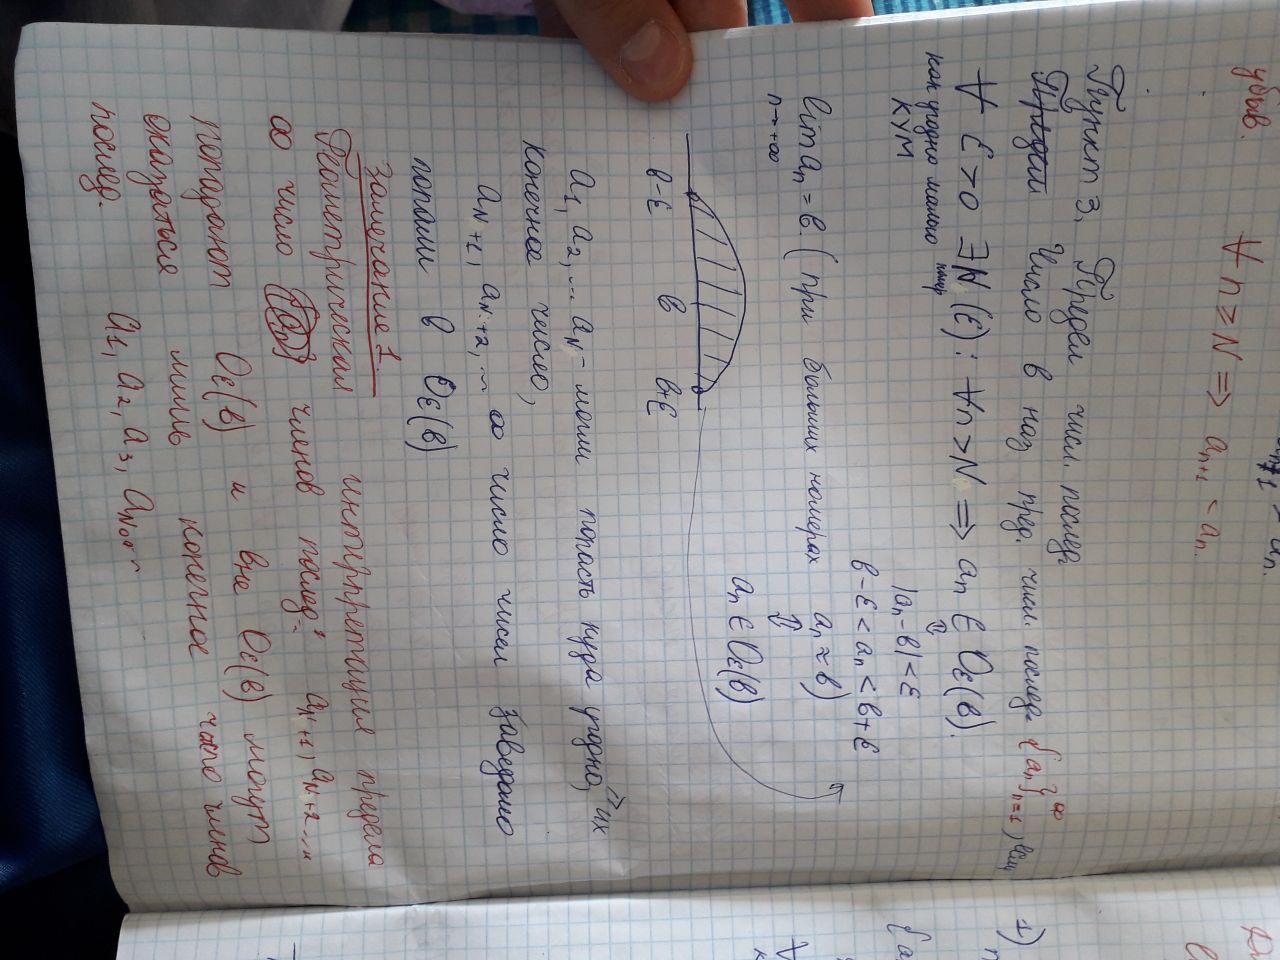 убыв. ∀ n ≥ N ⇒ aₙ₊₁ < aₙ.
Пункт 3. Предел числ. послед.
Число в наз пред. числ. послед. {aₙ}ₙ₌₁^∞, если
∀ ε > 0 ∃ N (ε): ∀n > N ⇒ aₙ ∈ Oε(в).
как угодно малого номер
КУМ
⇕
|aₙ - в| < ε
в - ε < aₙ < в + ε
lim aₙ = в. (при больших номерах aₙ ≈ в)
n→+∞
⇕
aₙ ∈ Oε(в)
в-ε в в+ε
a₁, a₂, ... a_N - могли попасть куда угодно, их
конечное число,
a_N+1, a_N+2, ... ∞ число чисел заведомо
попали в Oε(в)
Замечание 1.
Геометрическая интерпретация предела
∞ число членов послед. a_N+1, a_N+2...
попадают Oε(в) и вне Oε(в) могут
оказаться лишь конечное число членов
послед. a₁, a₂, a₃, a_N
1)